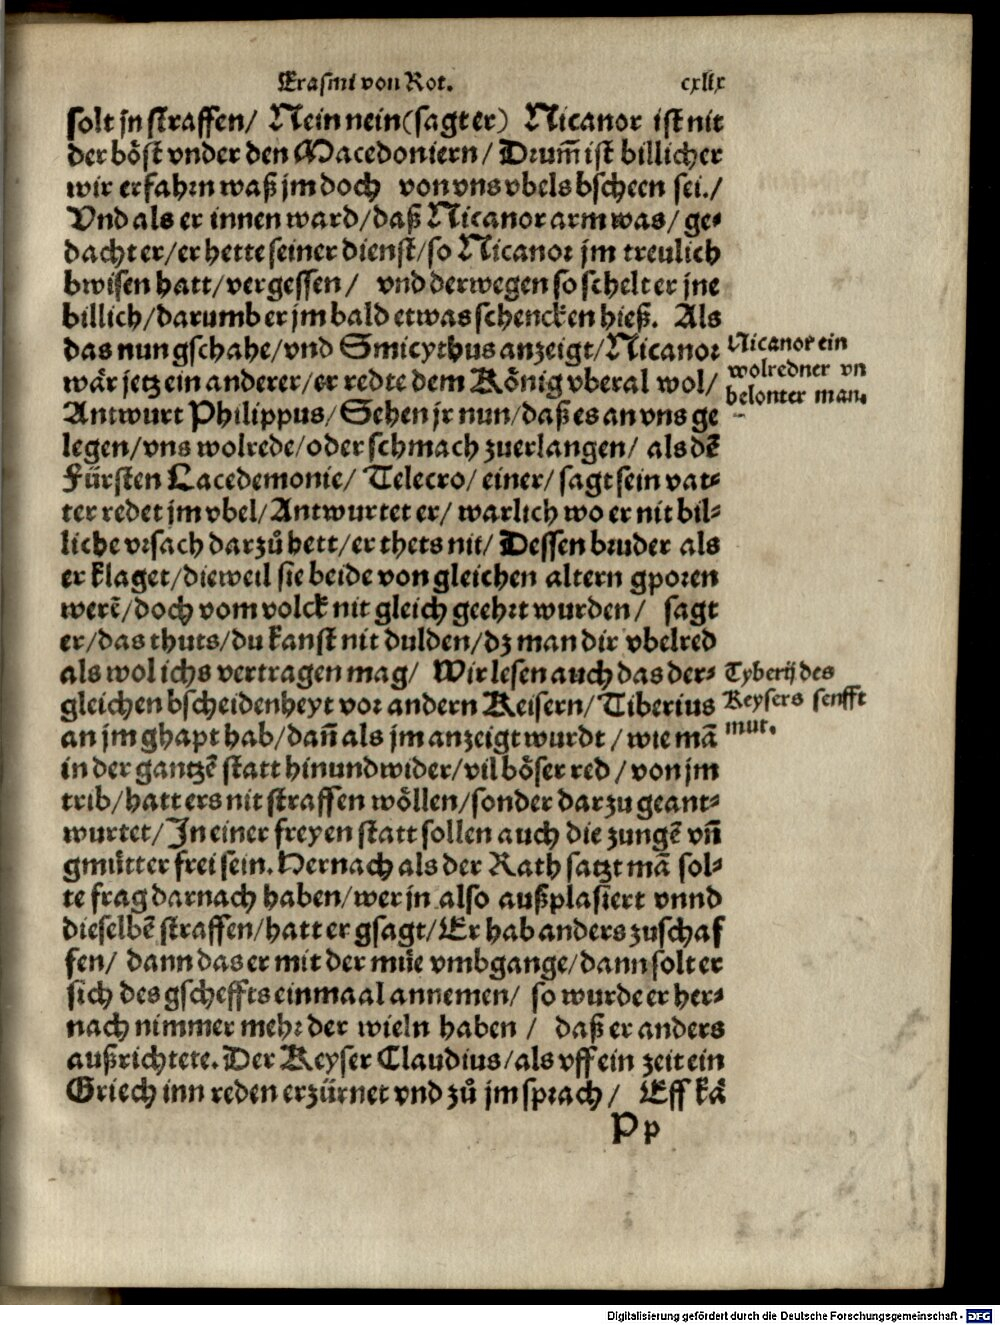 Erasmi von Rot. cxlix
solt jn straffen/ Nein nein (sagt er) Nicanor ist nit
der böst vnder den Macedoniern/ Drum̃ ist billicher
wir erfahrn waß jm doch von vns vbels bscheen sei./
Vnd als er innen ward/ daß Nicanor arm was/ ge-
dacht er/ er hette seiner dienst/ so Nicanor jm treulich
bwisen hatt/ vergessen/ vnd derwegen so schelt er jne
billich/ darumb er jm bald etwas schencken hieß. Als
das nun gschahe/ vnd Smicythus anzeigt/ Nicanor
wär jetz ein anderer/ er redte dem König vberal wol/
Antwurt Philippus/ Sehen jr nun/ daß es an vns ge
legen/ vns wolrede/ oder schmach zuerlangen/ als dẽ
Fürsten Lacedemonie/ Telecro/ einer/ sagt sein vat-
ter redet jm vbel/ Antwurtet er/ warlich wo er nit bil-
liche vrsach darzů hett/ er thets nit/ Dessen bruder als
er klaget/ dieweil sie beide von gleichen altern gporen
werẽ/ doch vom volck nit gleich geehrt wurden/ sagt
er/ das thuts/ du kanst nit dulden/ dz man dir vbelred
als wol ichs vertragen mag/ Wir lesen auch das der-
gleichen bscheidenheyt vor andern Keisern/ Tiberius
an jm ghapt hab/ dañ als jm anzeigt wurdt/ wie mã
in der gantzẽ statt hin und wider/ vil böser red/ von jm
trib/ hatt ers nit straffen wöllen/ sonder darzu geant-
wurtet/ In einer freyen statt sollen auch die zungẽ vñ
gmütter frei sein. Hernach als der Rath satzt mã sol-
te frag darnach haben/ wer jn also außplasiert vnnd
dieselbẽ straffen/ hatt er gsagt/ Er hab anders zuschaf
fen/ dann das er mit der müe vmbgange/ dann solt er
sich des gscheffts einmaal annemen/ so wurde er her-
nach nimmer mehr der wieln haben/ daß er anders
außrichtete. Der Keyser Claudius/ als vff ein zeit ein
Griech inn reden erzürnet vnd zů jm sprach/ Eff kã
Pp
Nicanor ein
wolredner vn
belonter man.
Tyberij des
Keysers senfft
mut.
Digitalisierung gefördert durch die Deutsche Forschungsgemeinschaft - DFG